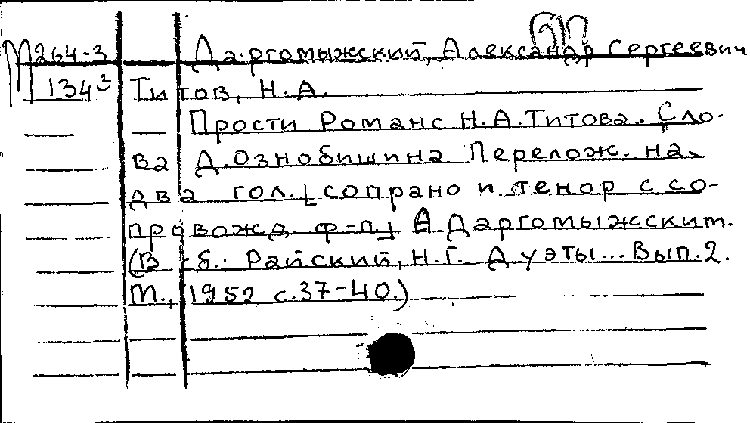 М 264-3 Даргомыжский, Александр Сергеевич
134³ Титов, Н.А.
— Прости Романс Н.А.Титова. Сло-
ва Д.Ознобишина Перелож. на
два гол. [сопрано и тенор с со-
провожд ф-п] А Даргомыжским.
(В сб.: Райский, Н.Г. Дуэты... Вып.2.
М., 1952 с.37-40.)